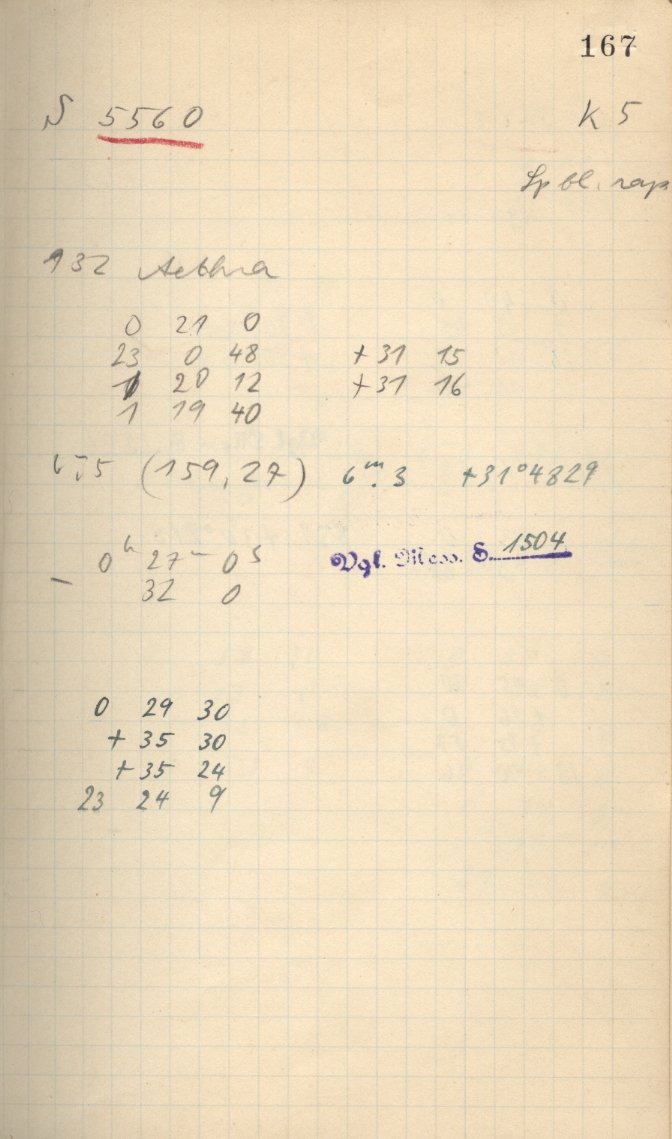 167
S 5560 K 5
132 Aethra
0 21 0
23 0 48 +31 15
1 20 12 +31 16
1 19 40
(159, 27) 6ᵐ.3 +31°4829
0ʰ 27ᵐ 0ˢ Vgl. Mess. S. 1504
– 32 0
0 29 30
+ 35 30
+ 35 24
23 24 9